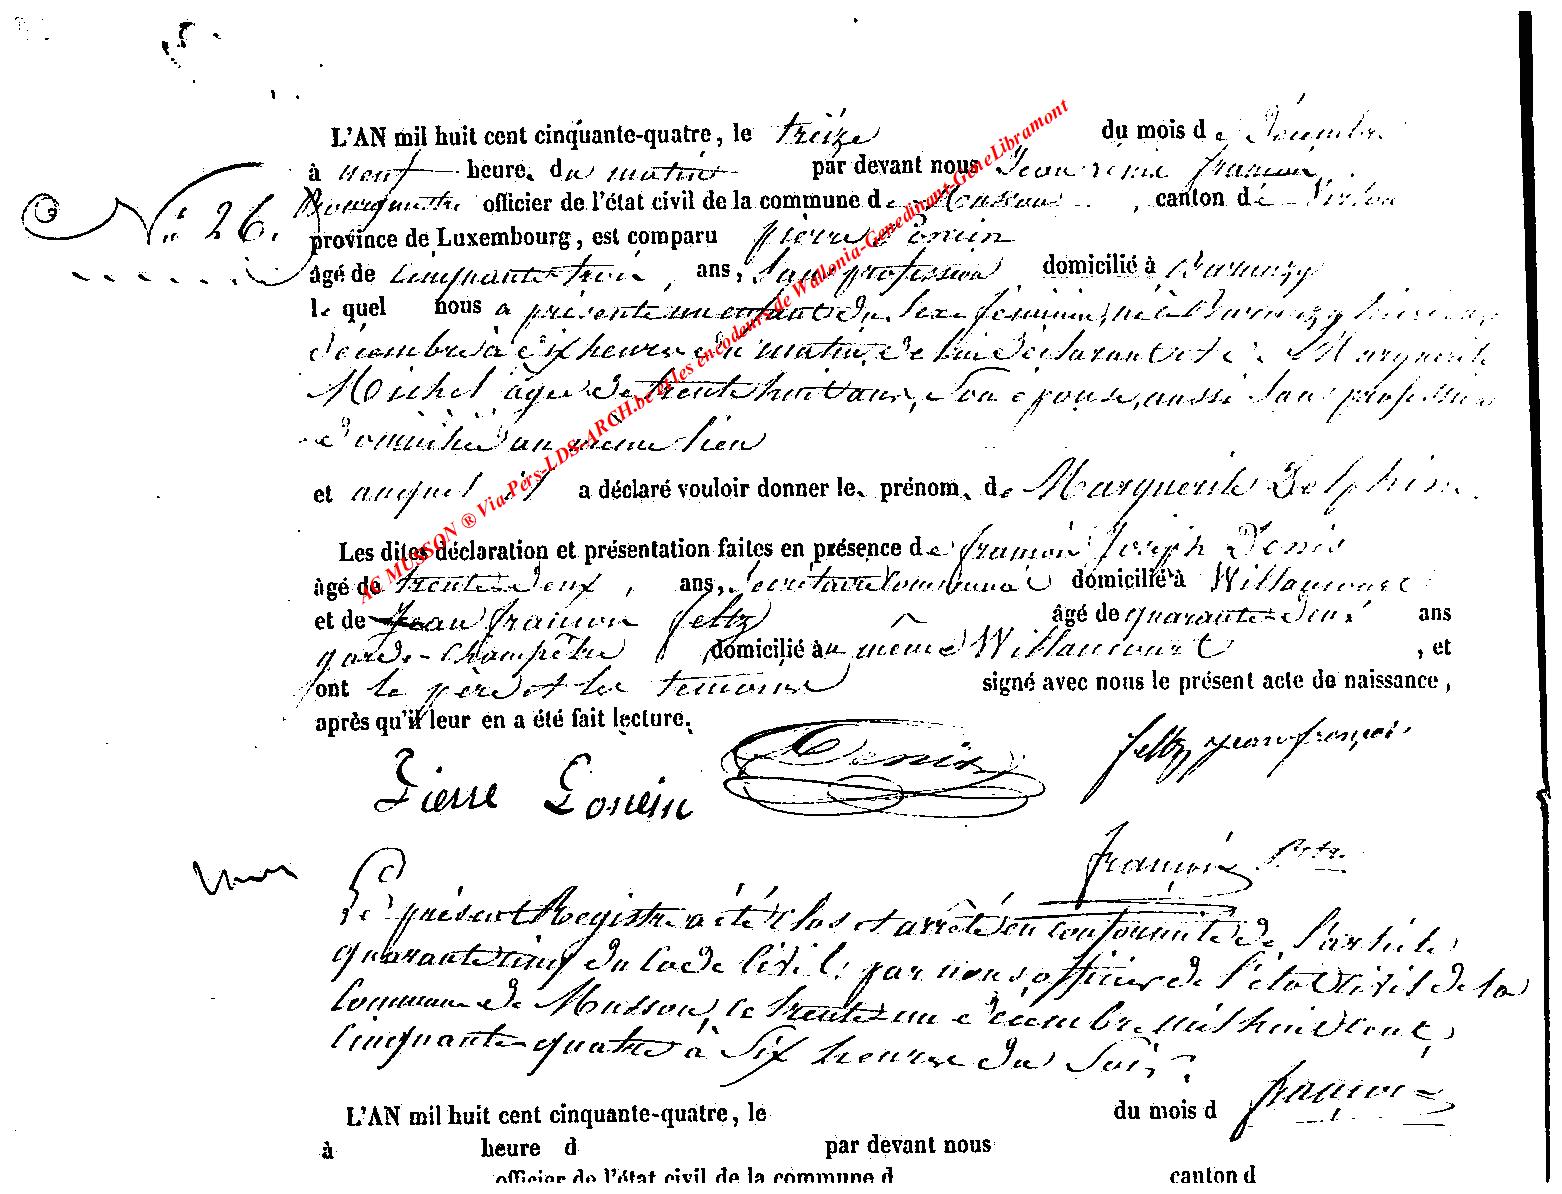 L'AN mil huit cent cinquante-quatre, le treize du mois de Décembre
à neuf heure, du matin par devant nous Jean René françois
N° 26. Bourgmestre officier de l'état civil de la commune de Musson, canton de Virton
province de Luxembourg, est comparu pierre Gonein
âgé de cinquante-trois, ans, Sans profession domicilié à Baranzy
le quel nous a présenté un enfant du Sexe féminin, né à Baranzy hier
décembre à dix heures du matin, de lui déclarant et de Marguerite
Michel âgée de trente huit ans, Son épouse, aussi Sans profession
domicilié au même lieu
et auquel il a déclaré vouloir donner les prénom, de Marguerite Delphine.
Les dites déclaration et présentation faites en présence de françois Joseph Denis
âgé de trente-deux, ans, Secrétaire Communal domicilié à Willancourt
et de Jean françois feltz âgé de quarante-deux ans
garde-champêtre domicilié au même Willancourt, et
ont le père et les témoins signé avec nous le présent acte de naissance,
après qu'il leur en a été fait lecture.
Pierre Gonein Denis feltz jean françois
françois
Le présent Registre a été clos et arrêté en conformité de l'article
quarante cinq du Code Civil, par nous, officier de l'état Civil de la
Commune de Musson, ce trente-un décembre mil huit cent
Cinquante-quatre à Six heures du Soir.
françois
L'AN mil huit cent cinquante-quatre, le du mois d
à heure d par devant nous
officier de l'état civil de la commune d canton d
AC MUSSON ® Via Pers-LDS-ARCH.be et les encodeurs de Wallonia-Genedinant-GeneLibramont